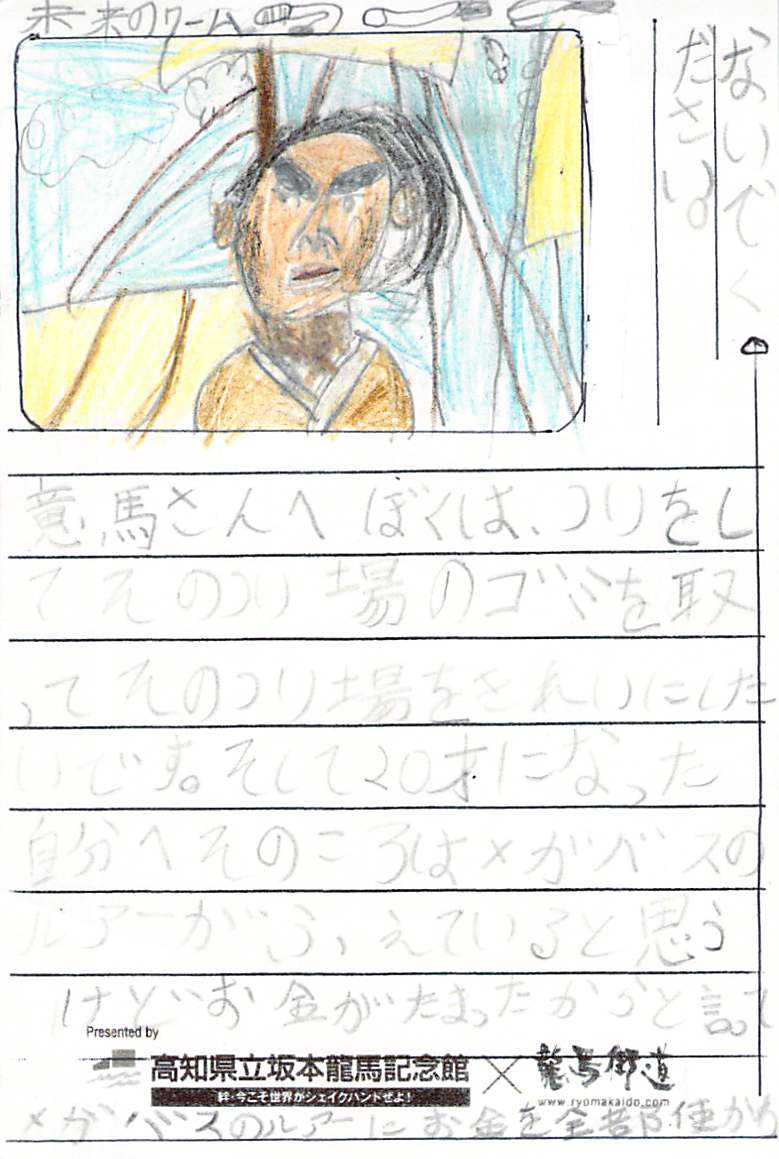 未来のワーム
竜馬さんへ ぼくは、つりをし
てそのつり場のゴミを取
ってそのつり場をきれいにした
いです。そして20才になった
自分へそのころはメガバスの
ルアーがふ、えていると思う
けどお金がたまったからと言って
Presented by
高知県立坂本龍馬記念館 × 龍馬街道
絆・今こそ世界がシェイクハンドぜよ!
www.ryomakaido.com
メガバスのルアーにお金を全部使わ
ないでく
ださい。